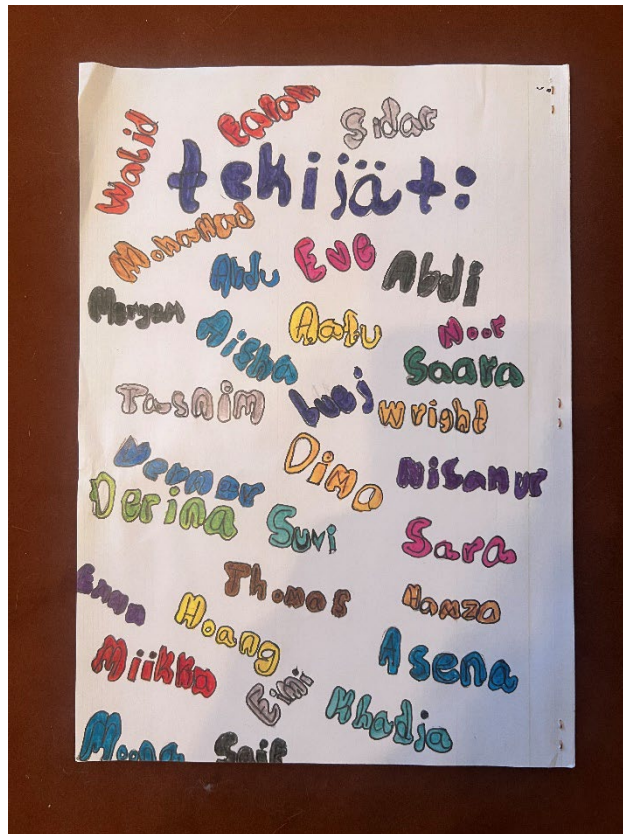 Walid
Sidar
tekijät:
Mohahad
Abdu
Eve
Abdi
Aisha
Aatu
Noor
Saara
Tasnim
Wright
Werner
Dima
Nisanur
Derina
Suvi
Sara
Thomas
Hamza
Hoang
Asena
Miikka
Eimi
Khadja